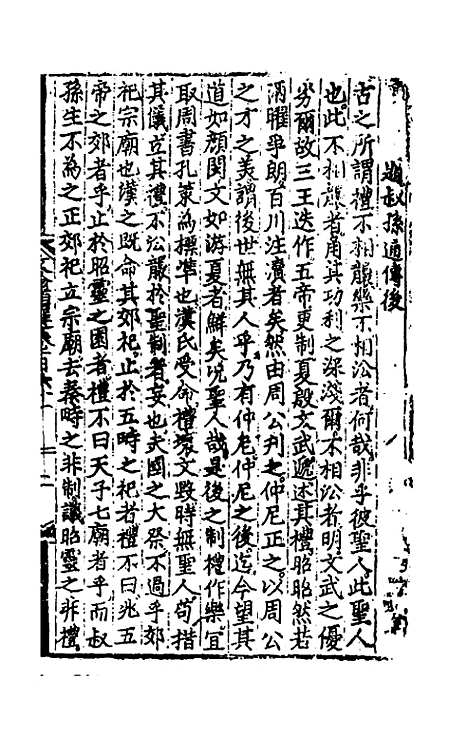 題叔孫通傳後
古之所謂禮不相襲樂不相沿者何哉非乎彼聖人此聖人
也此不相襲者角其功利之深淺爾不相沿者明文武之優
劣爾故三王迭作五帝更制夏殷文武遞述其禮昭昭然若
洒曜乎朗百川注瀆者矣然由周公制之仲尼正之以周公
之才之美謂後世無其人乎乃有仲尼仲尼之後迄今望其
道如顏閔文如游夏者鮮矣况聖人哉是後之制禮作樂宜
取周書孔策為標準也漢氏受命禮壞文毀時無聖人苟措
其儀立其禮不沿襲於聖制者妄也夫國之大祭不過乎郊
祀宗廟也漢之既命其郊祀止於五畤之祀者禮不曰兆五
帝之郊者乎止於昭靈之園者禮不曰天子七廟者乎而叔
孫生不為之正郊祀立宗廟去秦時之非制議昭靈之非禮